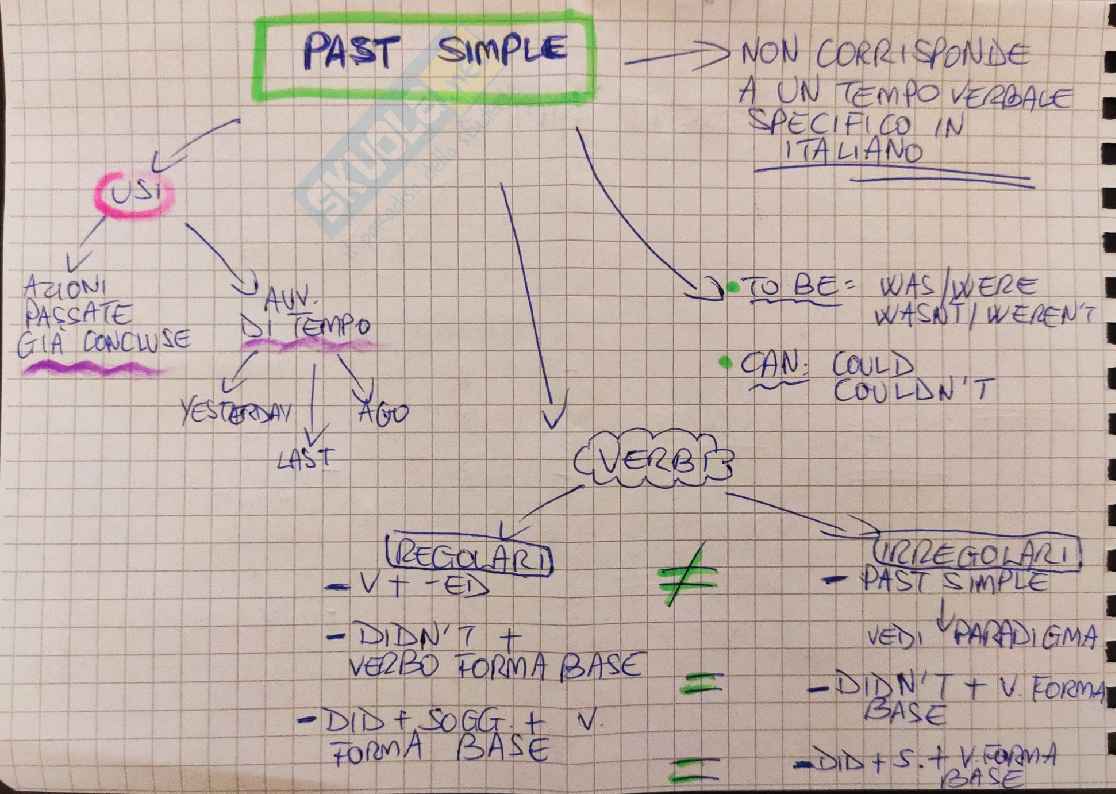 PAST SIMPLE
NON CORRISPONDE
A UN TEMPO VERBALE
SPECIFICO IN
ITALIANO
USI
AZIONI
PASSATE
GIÀ CONCLUSE
AVV.
DI TEMPO
YESTERDAY
LAST
AGO
TO BE = WAS/WERE
WASNT/WEREN'T
CAN: COULD
COULDN'T
VERBI
REGOLARI
- V + -ED
- DIDN'T +
VERBO FORMA BASE
- DID + SOGG. + V.
FORMA BASE
≠
=
=
IRREGOLARI
- PAST SIMPLE
VEDI PARADIGMA
- DIDN'T + V. FORMA
BASE
- DID + S. + V. FORMA
BASE
SKUOLA.net